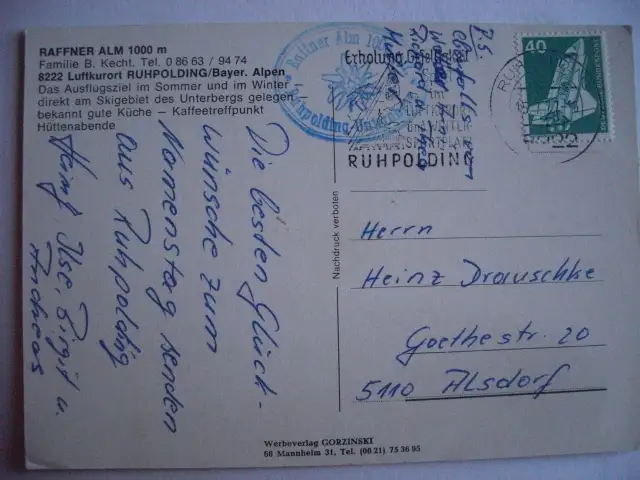 RAFFNER ALM 1000 m
Familie B. Kecht, Tel. 0 86 63 / 94 74
8222 Luftkurort RUHPOLDING/Bayer. Alpen
Das Ausflugsziel im Sommer und im Winter
direkt am Skigebiet des Unterbergs gelegen
bekannt gute Küche — Kaffeetreffpunkt
Hüttenabende
Die besten Glück-
wünsche zum
Namenstag senden
aus Ruhpolding
Heinz, Ilse, Birgit u.
Andreas
P.S.
Raffner Alm
Erholung
LUFTKURORT
RUHPOLDING
40
DEUTSCHE BUNDESPOST
Nachdruck verboten
Herrn
Heinz Drauschke
Goethestr. 20
5110 Alsdorf
Werbeverlag GORZINSKI
68 Mannheim 31, Tel. (06 21) 75 36 95